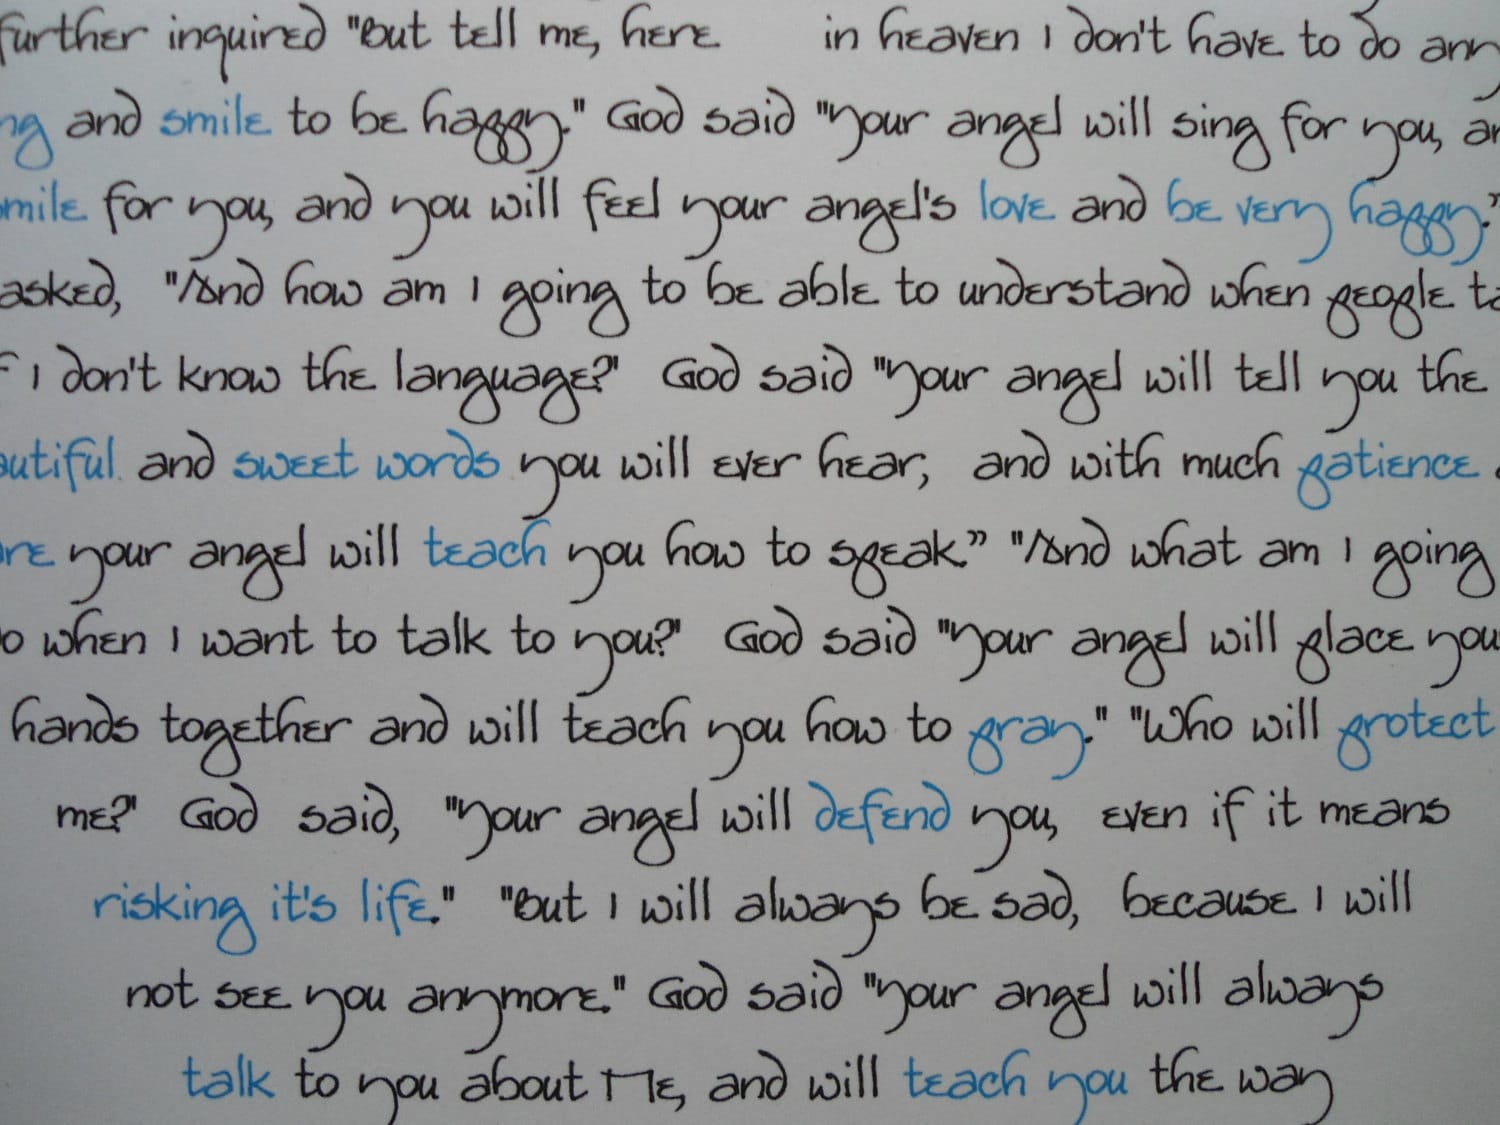 further inquired "But tell me, here in heaven I don't have to do any
ng and smile to be happy." God said "Your angel will sing for you, an
mile for you, and you will feel your angel's love and be very happy."
asked, "And how am I going to be able to understand when people ta
f I don't know the language?" God said "Your angel will tell you the
autiful and sweet words you will ever hear, and with much patience
are your angel will teach you how to speak." "And what am I going
o when I want to talk to you?" God said "Your angel will place you
hands together and will teach you how to pray." "Who will protect
me?" God said, "Your angel will defend you, even if it means
risking it's life." "But I will always be sad, because I will
not see you anymore." God said "Your angel will always
talk to you about Me, and will teach you the way